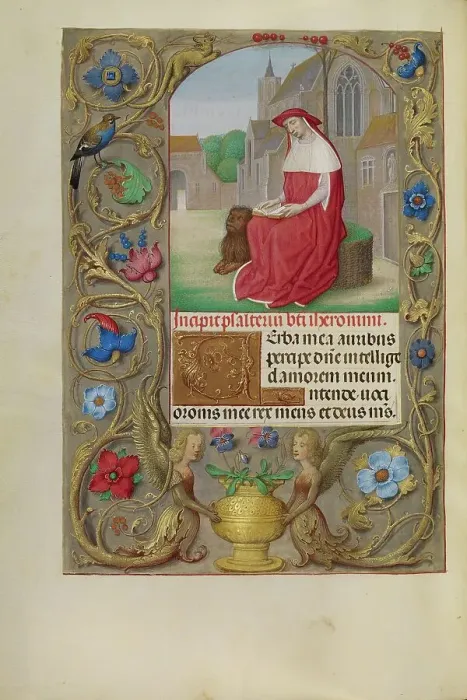 Incipit psalteriu bti iheronimi.
VErba mea auribus
percipe dñe intellige
clamorem meum.
intende voci
orõnis mee rex meus et deus mñs.